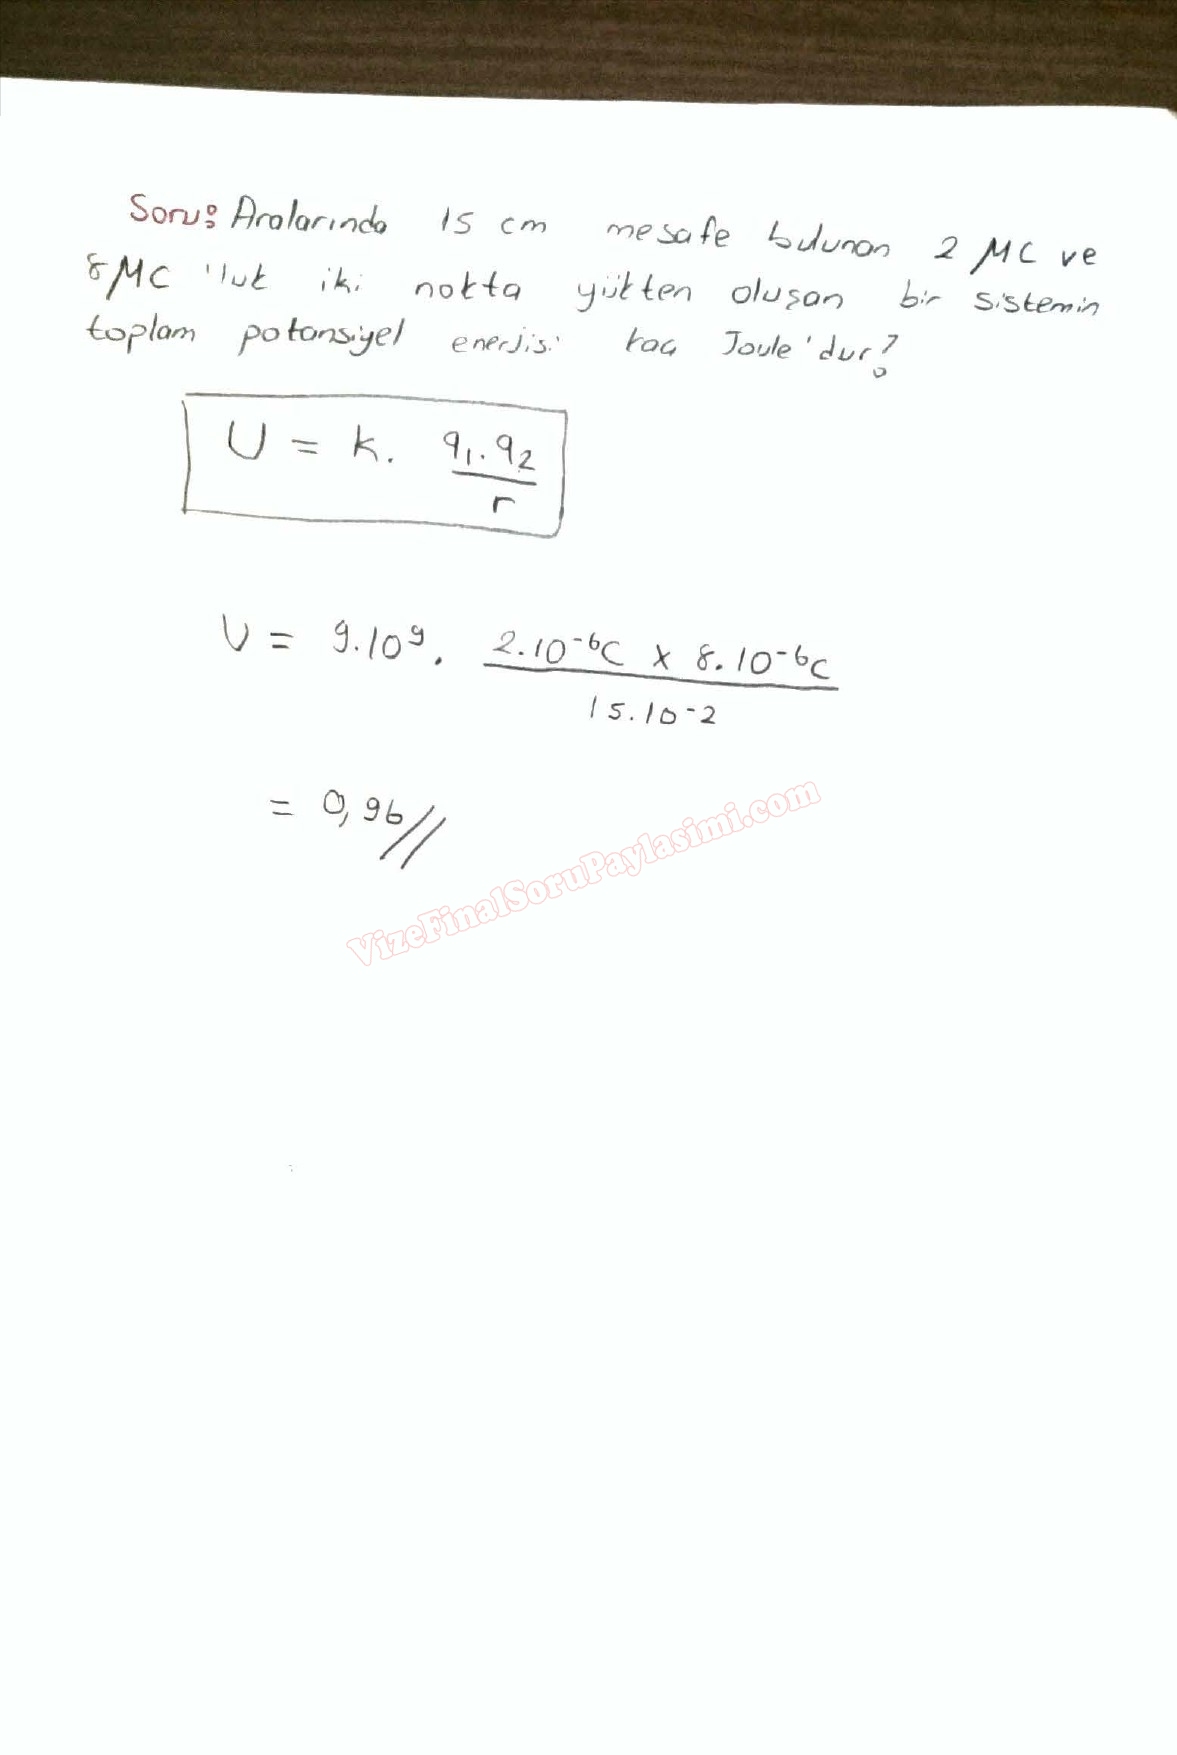 Soru: Aralarında 15 cm mesafe bulunan 2 μC ve
8 μC 'luk iki nokta yükten oluşan bir sistemin
toplam potansiyel enerjisi kaç Joule'dur?
U = k. q₁.q₂ / r
U = 9.10⁹. 2.10⁻⁶C x 8.10⁻⁶C / 15.10⁻²
= 0,96//
VizeFinalSoruPaylasimi.com